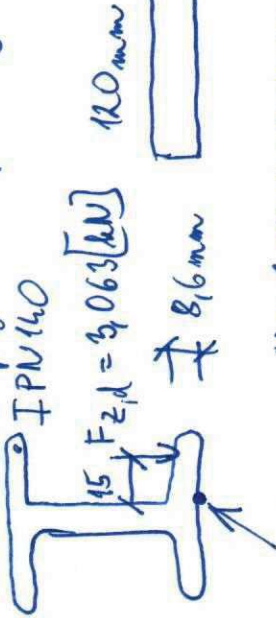 IPN 140
15
F z,d = 3,063 [kN]
8,6 mm
120 mm